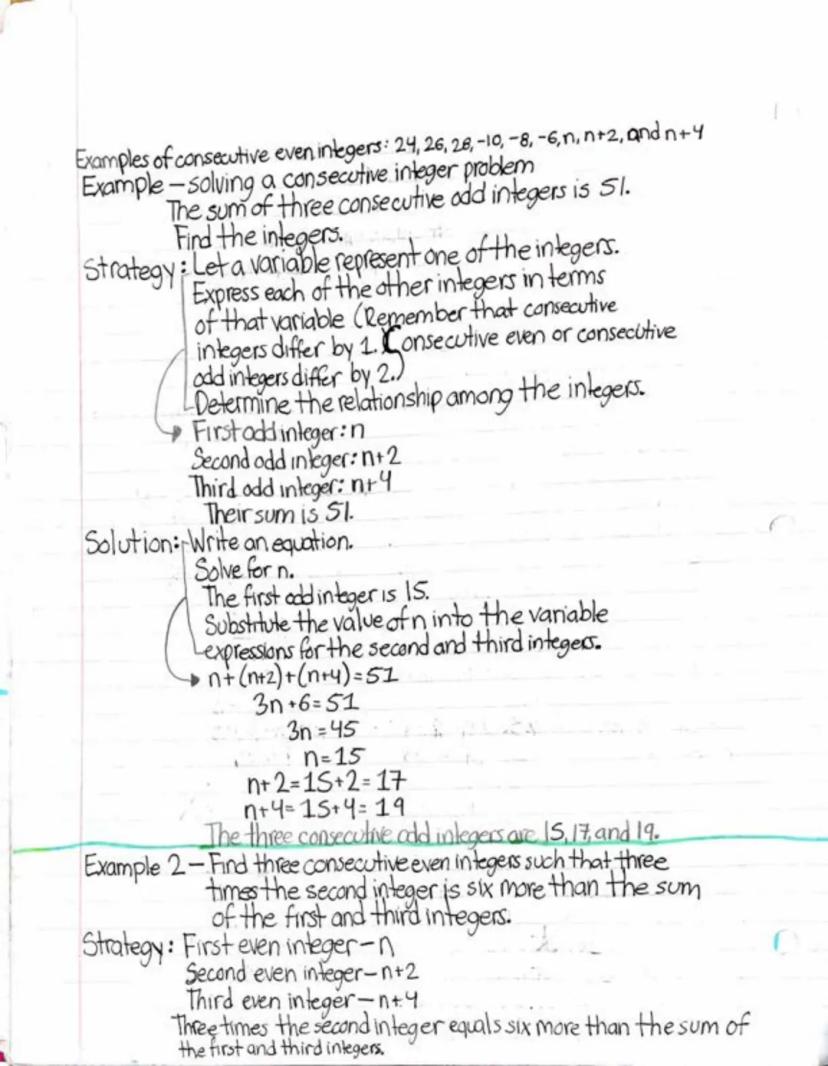 Examples of consecutive even integers: 24, 26, 28, -10, -8, -6, n, n+2, and n+4
Example - solving a consecutive integer problem
The sum of three consecutive odd integers is 51.
Find the integers.
Strategy: Let a variable represent one of the integers.
Express each of the other integers in terms
of that variable (Remember that consecutive
integers differ by 1. Consecutive even or consecutive
odd integers differ by 2.)
Determine the relationship among the integers.
First odd integer: n
Second odd integer: n+2
Third odd integer: n+4
Their sum is 51.
Solution: Write an equation.
Solve for n.
The first odd integer is 15.
Substitute the value of n into the variable
expressions for the second and third integers.
n+(n+2)+(n+4)=51
3n+6=51
3n=45
n=15
n+2=15+2=17
n+4=15+4=19
The three consecutive odd integers are 15, 17, and 19.
Example 2 - Find three consecutive even integers such that three
times the second integer is six more than the sum
of the first and third integers.
Strategy: First even integer - n
Second even integer - n+2
Third even integer - n+4
Three times the second integer equals six more than the sum of
the first and third integers.